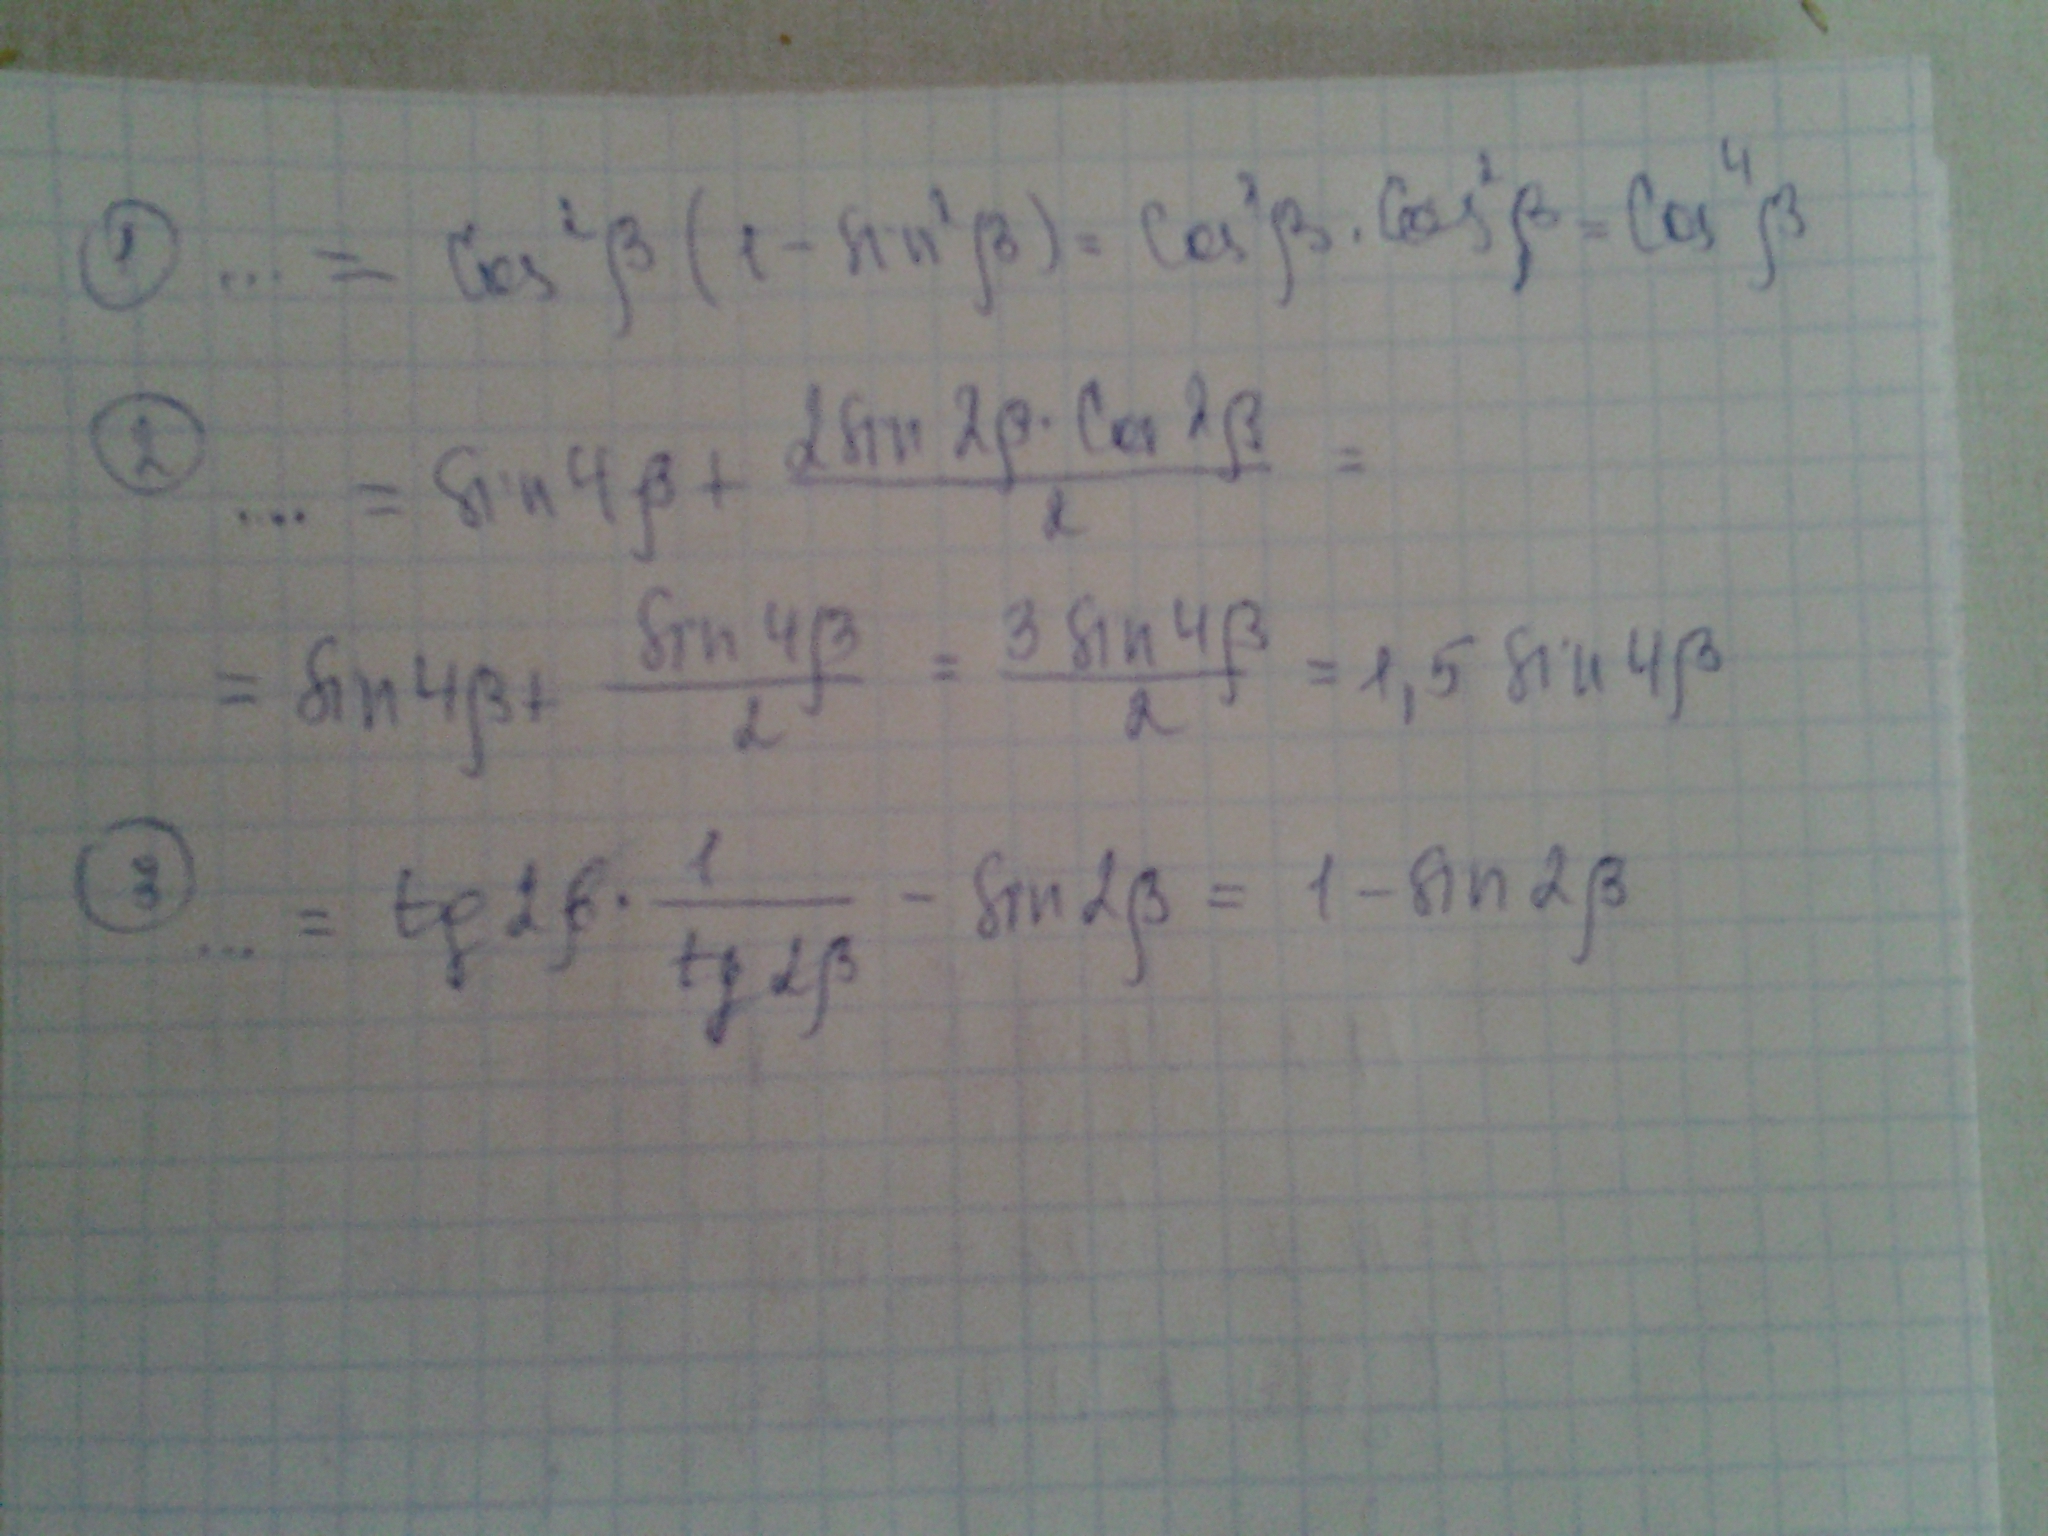 ① ... = Cos²β(1 - sin²β) = Cos²β · Cos²β = Cos⁴β
② .... = sin4β + (2sin2β · Cos2β)/2 =
= sin4β + (sin4β)/2 = (3sin4β)/2 = 1,5 sin4β
③ ... = tg2β · 1/(tg2β) - sin2β = 1 - sin2β